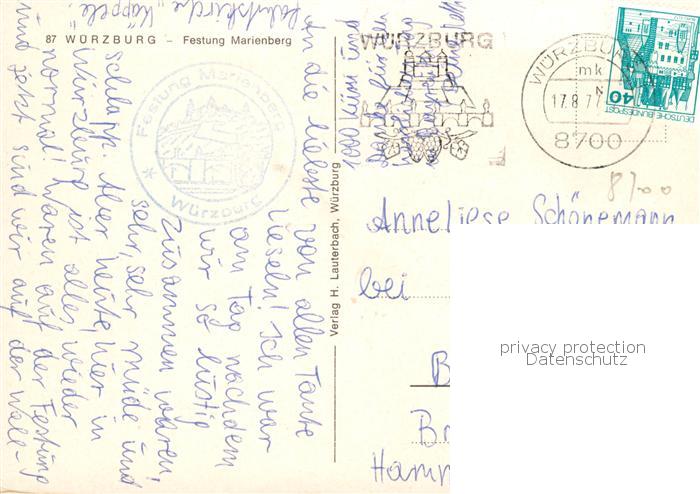 87 WÜRZBURG – Festung Marienberg
An die liebste von allen Tante
Lieseln! Ich war
am Tag nachdem
wir so lustig
zusammen waren,
sehr, sehr müde und
schlapp. Aber heute, hier in
Würzburg ist alles wieder
normal! Waren auf der Festung
und jetzt sind wir auf der Wall-
fahrtskirche „Käppele".
1000
Festung Marienberg
Würzburg
Verlag H. Lauterbach, Würzburg
WÜRZBURG
WÜRZBURG
mk
N
17.8.77
8700
DEUTSCHE BUNDESPOST
40
8/00
Anneliese Schönemann
bei
B
Br
Hamp
privacy protection
Datenschutz